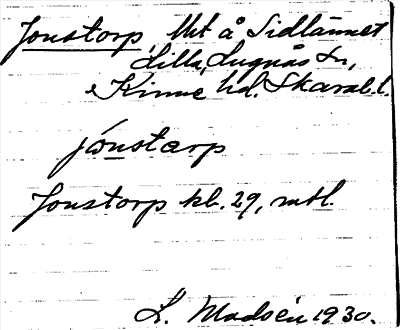 Jonstorp, Uht å Sidlännet
Lilla, Lugnås sn,
Kinne hd. Skarab. l.
jónstorp
Jonstorp kb. 29, mtl.
L. Madsén 1930.